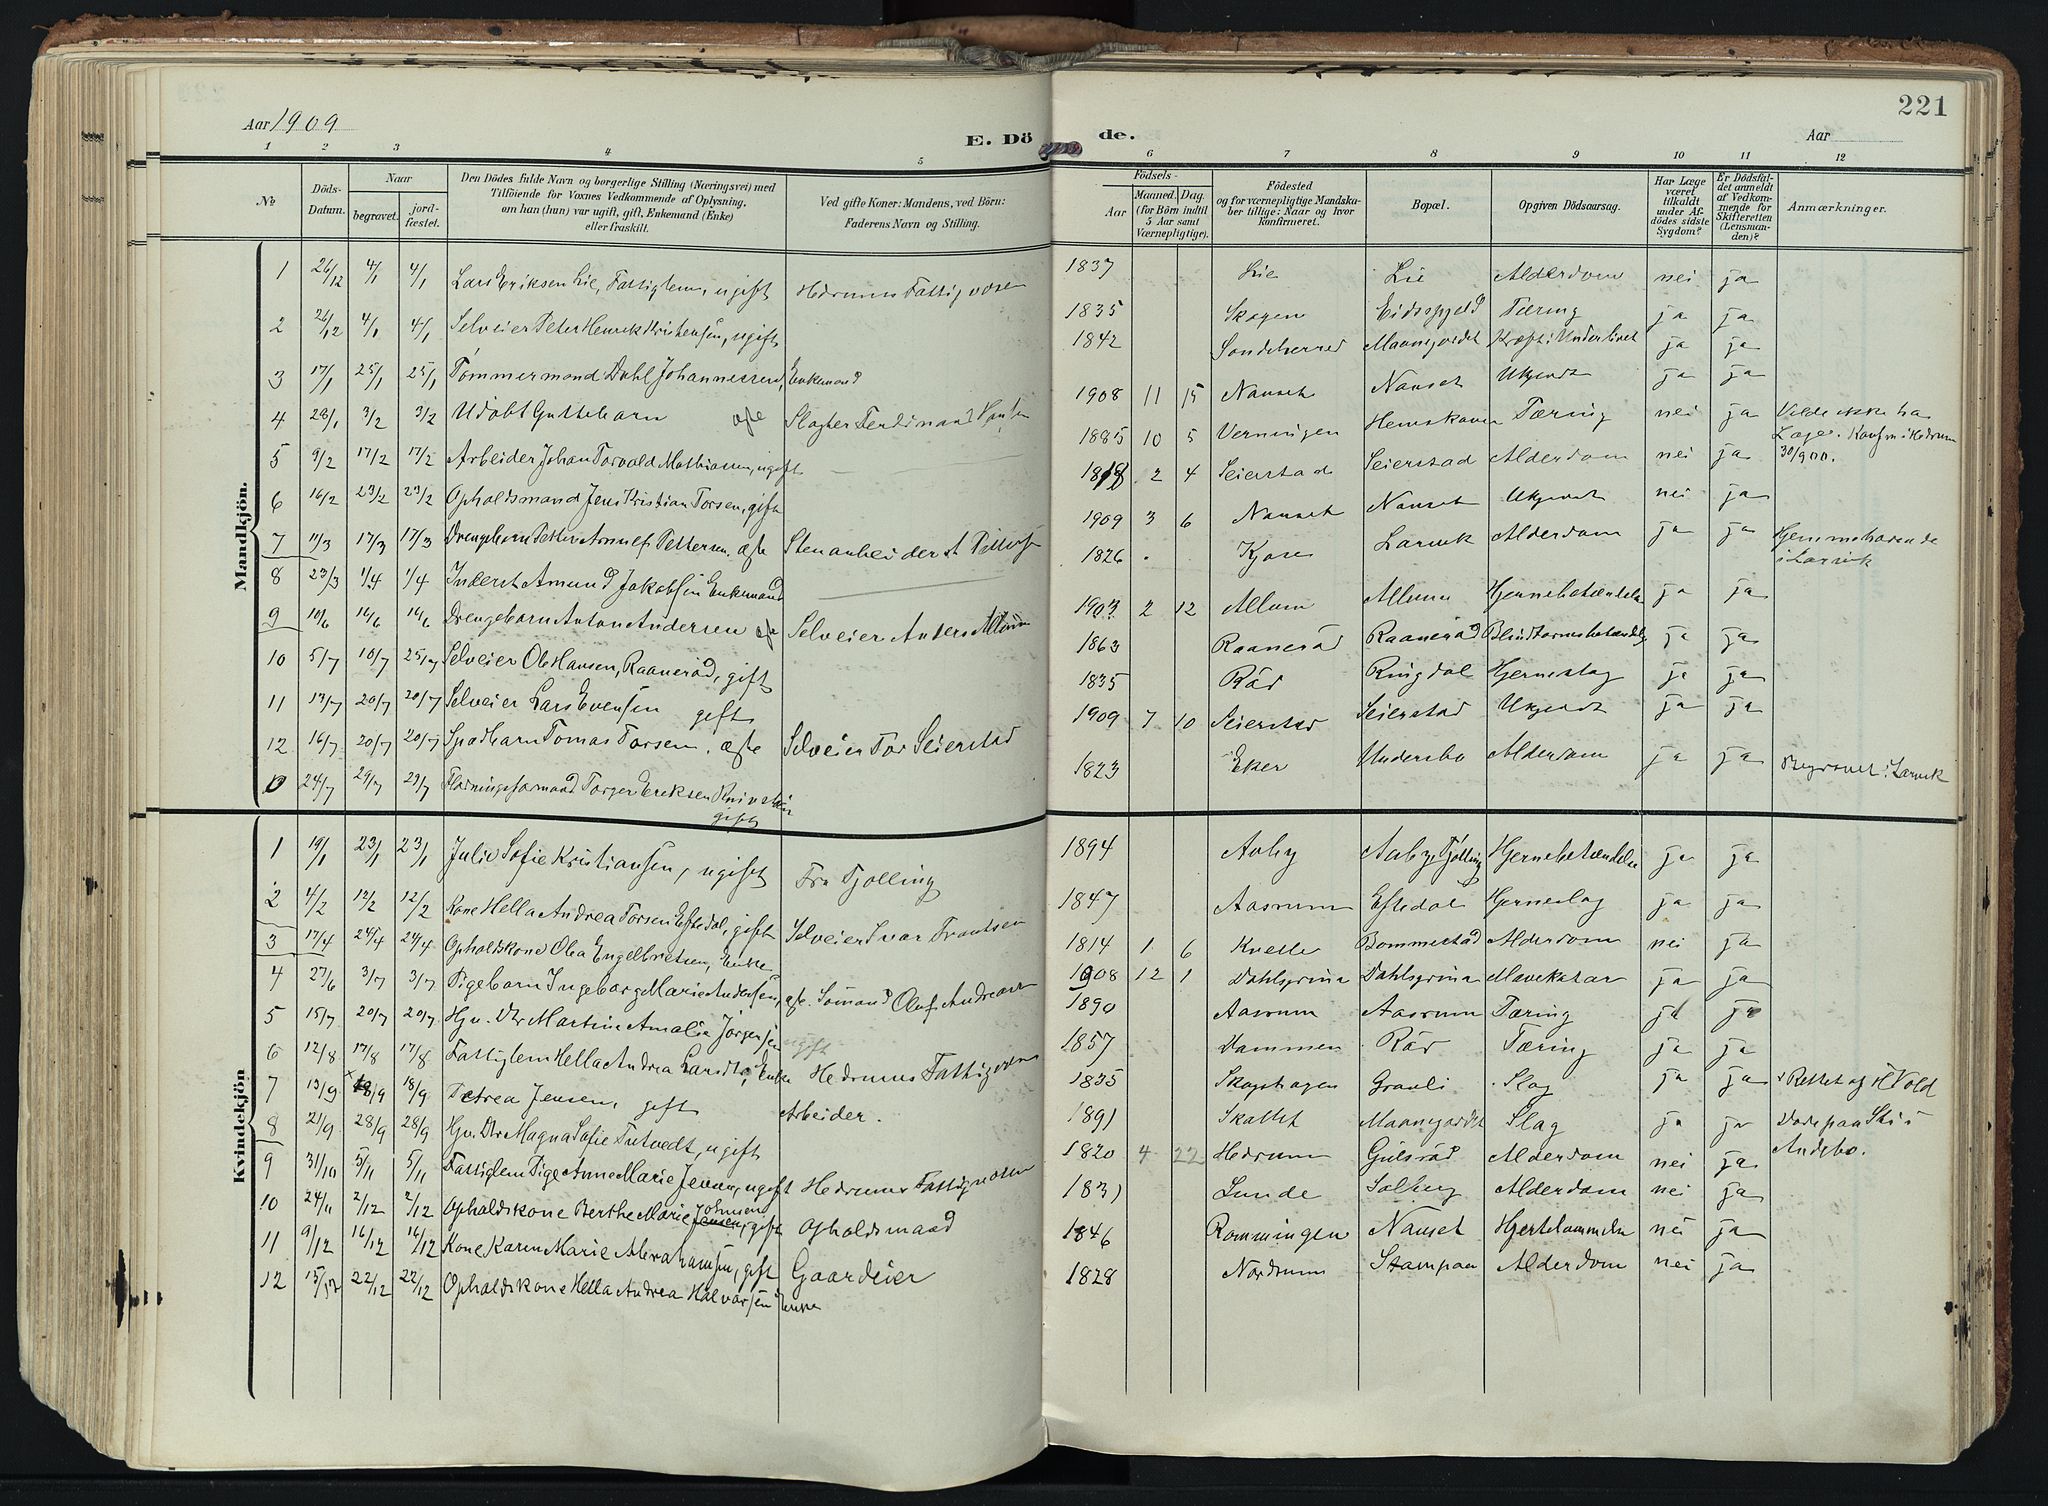 221
Aar 1909
E. Dö de.
Aar
1 2 3 4 5 6 7 8 9 10 11 12
№
Döds-
Datum.
Naar
begravet.
jord-
fæstet.
Den Dödes fulde Navn og borgerlige Stilling (Næringsvei) med
Tilföiende for Voxnes Vedkommende af Oplysning,
om han (hun) var ugift, gift, Enkemand (Enke)
eller fraskilt.
Ved gifte Koner: Mandens, ved Börn:
Faderens Navn og Stilling.
Födsels-
Aar
Maaned. Dag.
(for Börn indtil
5 Aar samt
Værnepligtige).
Födested
og for værnepligtige Mandska-
ber tillige: Naar og hvor
konfirmeret.
Bopæl.
Opgiven Dödsaarsag.
Har Læge
været
tilkaldt
under Af-
dödes sidste
Sygdom?
Er Dödsfal-
det anmeldt
af Vedkom-
mende for
Skifteretten
(Lensman-
den)?
Anmærkninger.
Mandkjön.
1 26/12 4/1 4/1 Lars Eriksen Lie, Fattiglem, ugift Hedrums Fattigvæsen 1837 Lie Lie Alderdom nei ja
2 26/12 4/1 4/1 Selveier Peter Henrik Kristensen, ugift 1835 Skogen Eidsfjeld Tæring ja ja
3 17/1 25/1 25/1 Tømmermand Dahl Johannessen, Enkemand 1842 Sondeherred Maanejordet Kræft i Underlivet ja ja
4 28/1 3/2 3/2 Udøbt Guttebarn ægte Slagter Ferdinand Hansen 1908 11 15 Nanset Nanset Ukjendt ja ja
5 9/2 17/2 17/2 Arbeider Johan Torvald Mathiassen, ugift 1885 10 5 Verningen Hemskoven Tæring nei ja Vilde ikke ha
Læge. Konfm i Hedrum
30/9 00.
6 16/2 23/2 23/2 Opholdsmand Jens Kristian Torsen, gift 1818 2 4 Seierstad Seierstad Alderdom nei ja
7 11/3 17/3 17/3 Drengebarn Petter Arnulf Pettersen. ægte Stenarbeider A Pettersen 1909 3 6 Nanset Nanset Ukjendt nei ja
8 23/3 1/4 1/4 Inderst Amund Jakobsen Enkemand 1826 Kjose Larvik Alderdom ja ja Hjemmehørende
i Larvik
9 10/6 16/6 16/6 Drengebarn Anton Andersen ægte Selveier Anders Allum 1903 2 12 Allum Allum Hjernebetændelse ja ja
10 5/7 10/7 25/7 Selveier Ole Hansen, Raanerød, gift 1863 Raanerød Raanerød Blindtarmsbetændelse ja ja
11 13/7 20/7 20/7 Selveier Lars Evensen gift 1835 Rød Ringdal Hjerneslag ja ja
12 16/7 20/7 20/7 Spædbarn Tomas Torsen. ægte Selveier Tor Seierstad 1909 7 10 Seierstad Seierstad Ukjendt ja ja
0 24/7 29/7 29/7 Fløtningsformand Torger Eriksen
gift 1823 Eker Undersbo Alderdom ja ja Begravet i Larvik
Kvindekjön
1 19/1 23/1 23/1 Julie Sofie Kristiansen, ugift Fra Tjølling 1894 Aaby Aaby Tjølling Hjernebetændelse ja ja
2 4/2 12/2 12/2 Kone Hella Andrea Torsen Eftedal, gift Selveier Ivar Frantsen 1847 Aasrum Eftedal Hjerneslag ja ja
3 17/4 24/4 24/4 Opholdskone Olea Engelbretsen, Enke 1814 1 6 Kvelle Bommestad Alderdom nei ja
4 27/6 3/7 3/7 Pigebarn Ingeborg Marie Andersen, æg. Sømand Oluf Andersen 1908 12 1 Dahlsgrina Dahlsgrina Mavekatar ja ja
5 15/7 20/7 20/7 Hjv. Dtr Martine Amalie Jørgensen ugift 1890 Aasrum Aasrum Tæring ja ja
6 12/8 17/8 17/8 Fattiglem Hella Andrea Larsdtr, Enke Hedrums Fattigvæsen 1857 Dammen Rød Tæring ja ja
7 13/9 x 18/9 18/9 Petrea Jensen, gift Arbeider. 1835 Skogshagen Gravli Slag ja ja x Rettet af H Vold
8 21/9 28/9 28/9 Hjv. Dtr Magna Sofie Tutvedt, ugift 1891 Skattet Maanejordet Slag ja ja Døde paa Ski i
Andebo.
9 31/10 5/11 5/11 Fattiglem Pige Anne Marie Jensen, ugift Hedrums Fattigvæsen 1820 4 22 Hedrum Gulsrød Alderdom nei ja
10 24/11 2/12 2/12 Opholdskone Berthe Marie Jensen Johnsen, gift Opholdsmand 1831 Lunde Solberg Alderdom nei ja
11 9/12 16/12 16/12 Kone Karen Marie Abrahamsen, gift Gaardeier 1846 Romningen Nanset Hjertelammelse nei ja
12 15/12 22/12 22/12 Opholdskone Hella Andrea Halvorsen Enke 1828 Nordrum Stampaa Alderdom nei ja